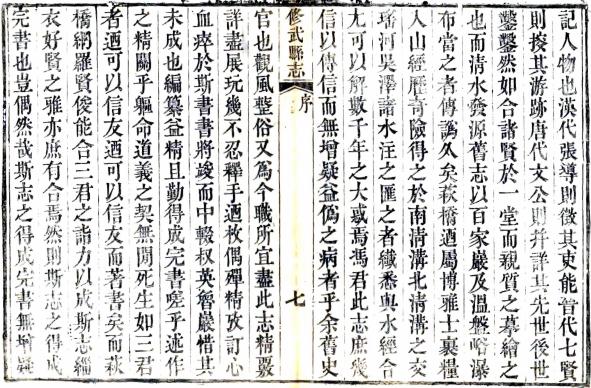 記人物也漢代張導則徵其吏能晉代七賢
則其游跡唐代文公則幷詳其先世後世
鑿鑿然如合諸賢於一堂而親質之摹繪之
也而清水發源舊志以百家巖及溫盤峪瀑
布當之者傳譌久矣萩橋迺屬博雅士裹糧
入山經歷奇險得之於南淸溝北淸溝之交
瑤河吳澤諸水注之匯之者纖悉與水經合
尤可以解數千年之大惑焉馮君此志庶幾
信以傳信而無增疑益僞之病者乎余舊史
修武縣志
序
七
官也觀風整俗又爲今職所宜盡此志精覈
詳盡展玩幾不忍釋手迺枚偶殫精攷訂心
血瘁於斯書書將竣而中輟權英魯巖惜其
未成也編纂益精且勤得成完書嗟乎述作
之精關乎軀命道義之契無閒死生如三君
者迺可以信友迺可以信友而著書矣而萩
橋網羅賢俊能合三君之詣力以成斯志緇
衣好賢之雅亦庶有合焉然則斯志之得成
完書也豈偶然哉斯志之得成完書無增疑